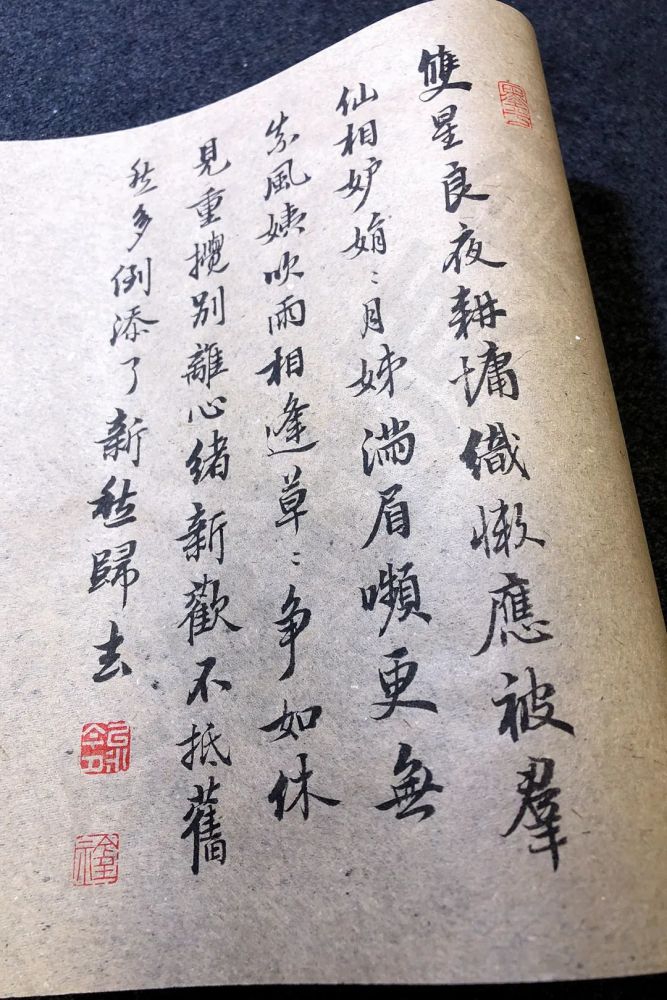 雙星良夜耕慵織懶應被羣
仙相妒娟〻月姊滿眉嚬更無
奈風姨吹雨相逢草〻争如休
見重攪別離心緒新歡不抵舊
愁多倒添了新愁歸去